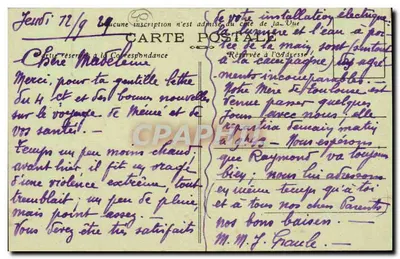 Jeudi 12/9 29
Aucune inscription n'est admise du côté de la Vue
CARTE POSTALE
Correspondance
Réservée à l'Adresse
Chère Madeleine
Merci, pour ta gentille lettre
du 4 ct et des bonnes nouvelles
sur le voyage de Mémé et de
vos santés.
Temps un peu moins chaud
avant hier il fit un orage
d'une violence extrême, tout
tremblait; un peu de pluie
mais point assez.
Vous devez être très satisfaits
de votre installation électrique.
la lumière et l'eau à por
tée de la main sont surtout
à la campagne, des agré
ments incomparables.
Notre Mère de Toulouse est
venue passer quelques
jours avec nous; elle
repartira demain matin
Nous espérons
que Raymond va toujours
bien; nous lui adressons
en même temps qu'à toi
et à tous nos chers Parents,
nos bons baisers.
M. M. J.
CPARAMA